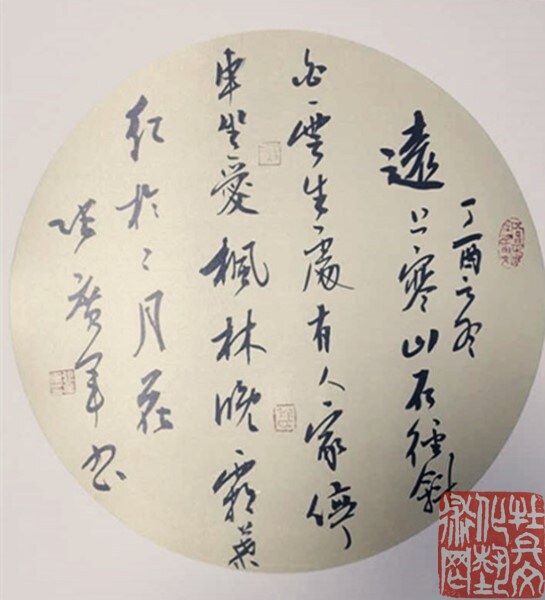 丁酉之冬
遠上寒山石徑斜
白雲生處有人家停
車坐愛楓林晚霜葉
紅於二月花
張廣軍書